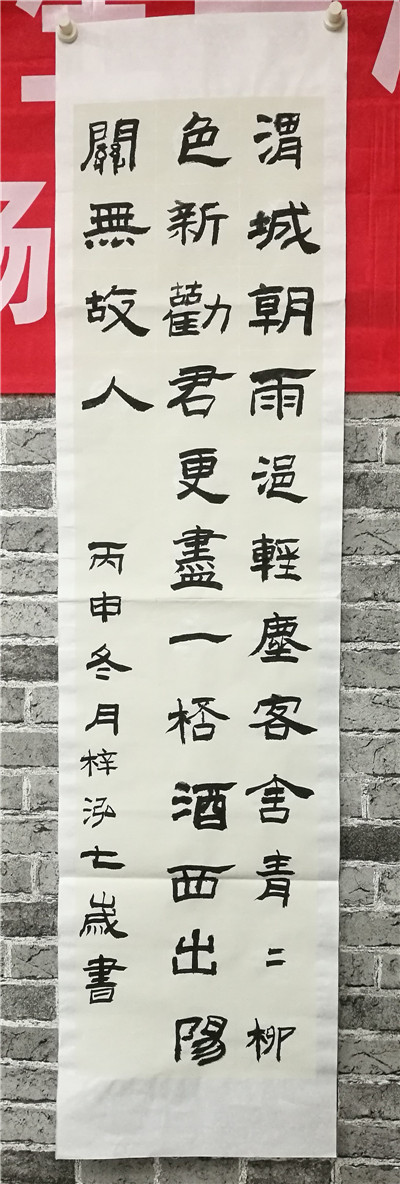 渭城朝雨浥輕塵客舍青〻柳
色新勸君更盡一桮酒西出陽
關無故人
丙申冬月梓泓七歲書